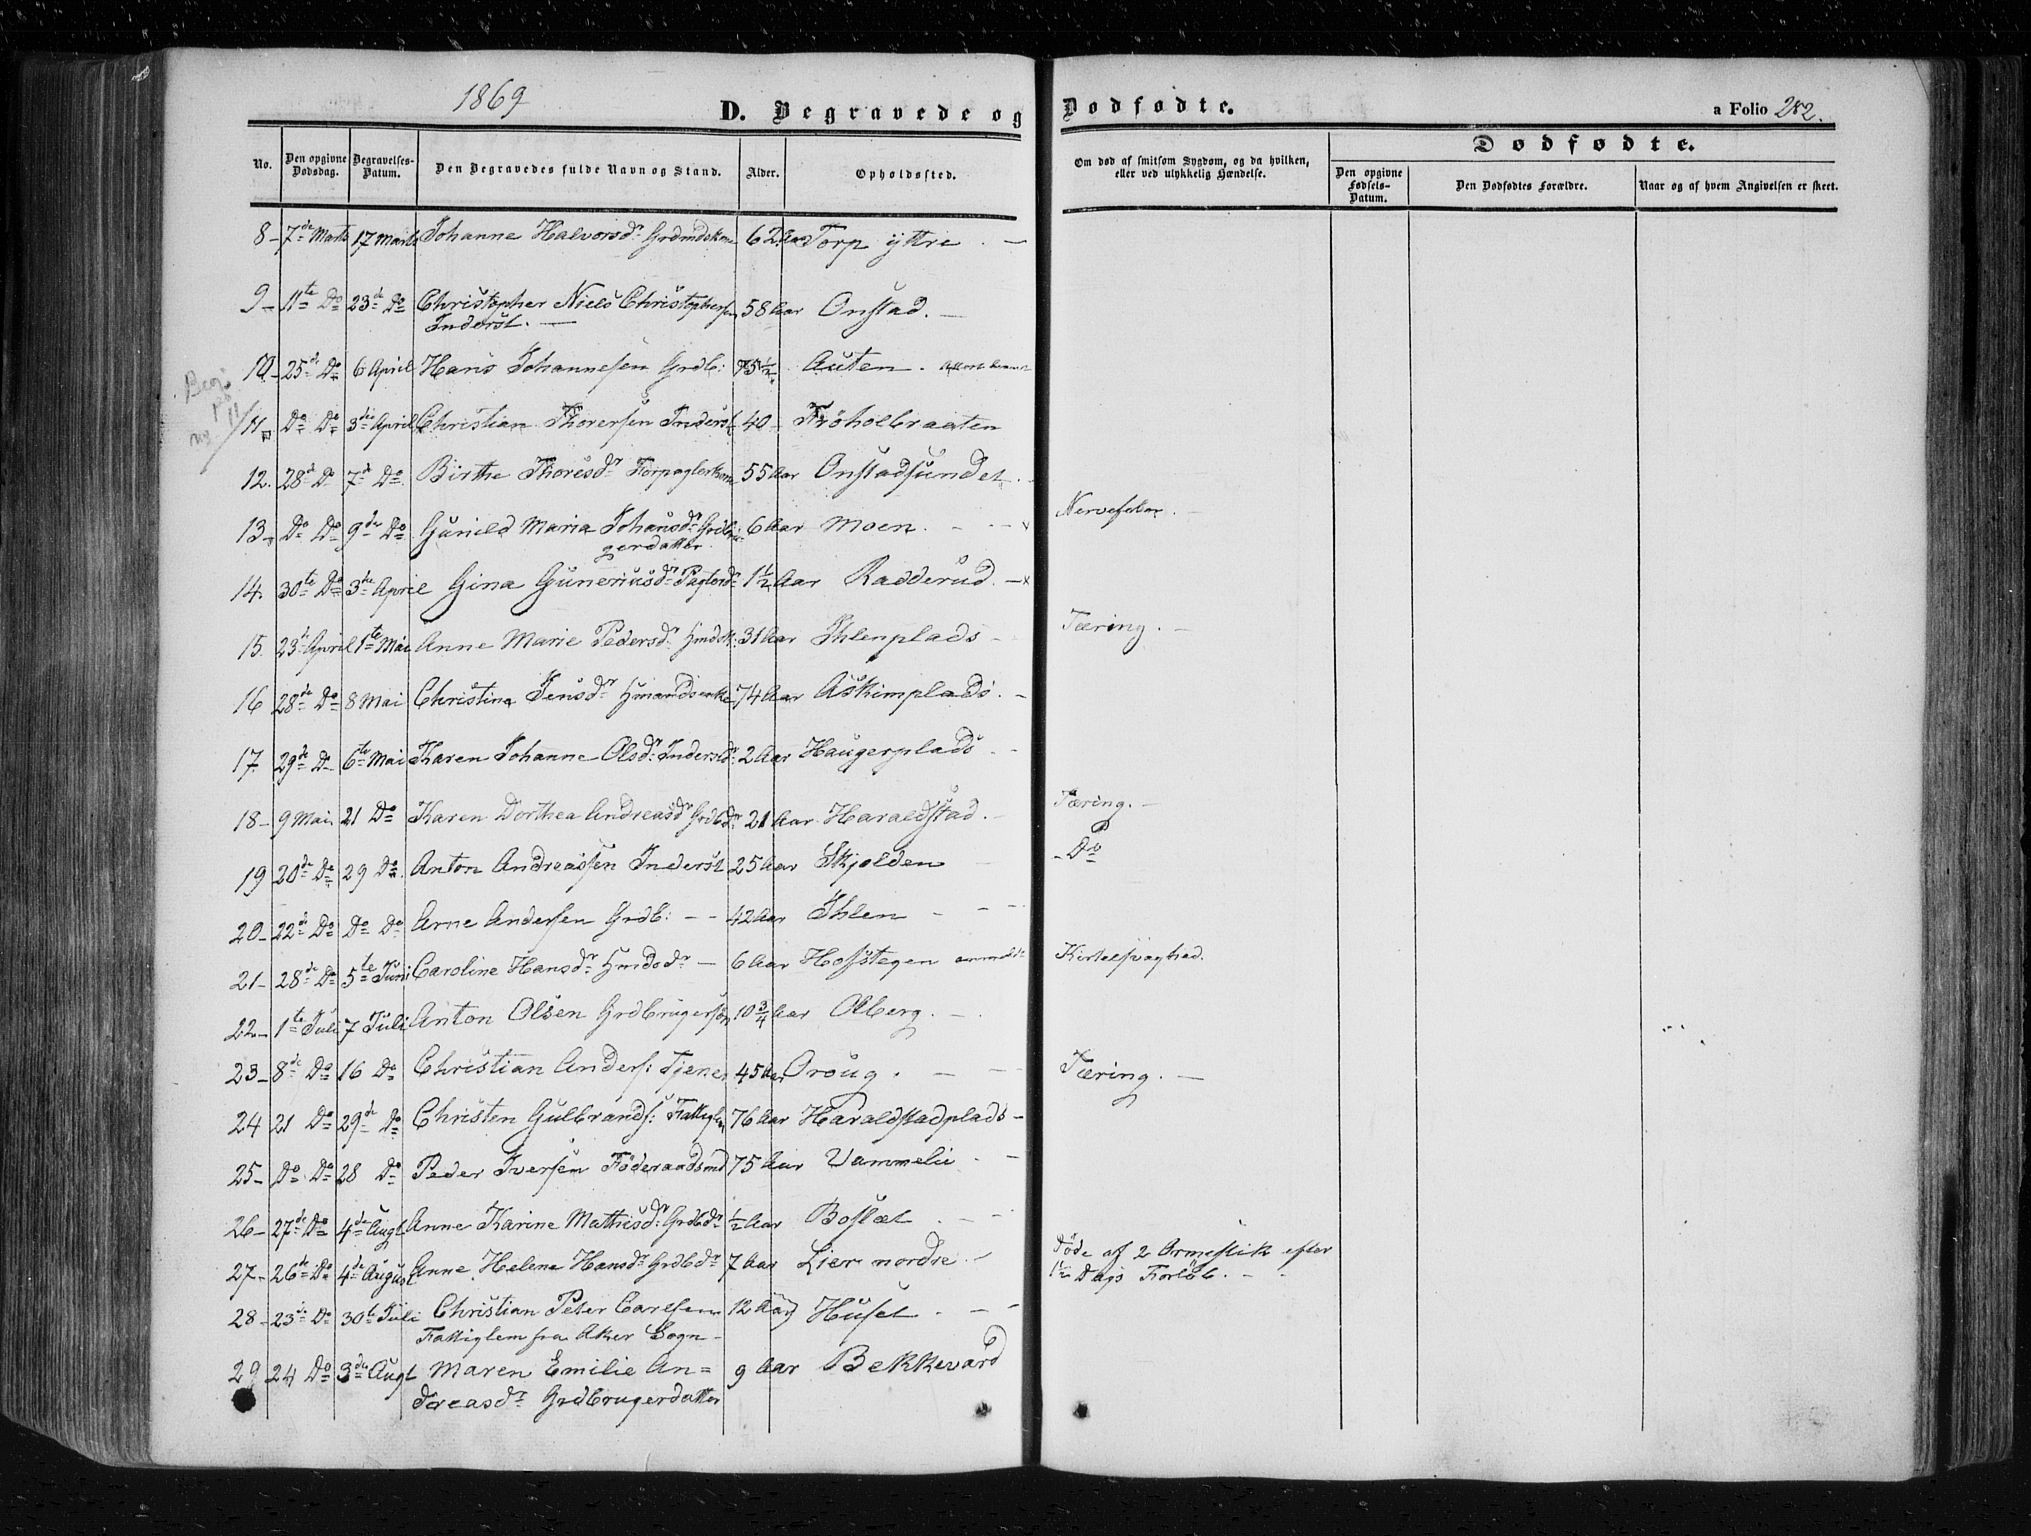 1869
D. Begravede og Dødfødte.
a Folio 282.
No.
Den opgivne Dødsdag.
Begravelses-Datum.
Den Begravedes fulde Navn og Stand.
Alder.
Opholdssted.
Om død af smitsom Sygdom, og da hvilken,
eller ved ulykkelig Hændelse.
Dødfødte.
Den opgivne Fødsels-Datum.
Den Dødfødtes Forældre.
Naar og af hvem Angivelsen er skeet.
8 - 7de Marts 17 Marts Johanne Halvorsdr Grdmdskone 62 Aar Torp yttre
9 - 11te Do 23de Do Christopher Niels Christophersen 58 Aar Onstad.
Inderst.
10 - 25de Do 6 April Hans Johannesen Grdb: 75 1/2 Auten.
11 Do Do 3die April Christian Thorersen Inderst 40 - Frøholbraaten
12. 28de Do 7de Do Birthe Thoresdr 55 Aar Onstadsundet.
13 - Do Do 9de Do Gunild Maria Johansdr Grdbru- 6 Aar Moen. Nervefeber.
gerdatter
14. 30te Do 3die April Gina Guneriusdr 1 1/2 Aar Radderud.
15. 23de April 1te Mai Anne Marie Pedersdr Hmdsk: 31 Aar Ihlenplads Tæring.
16 28de Do 8 Mai Christina Jensdr Hmandsenke 74 Aar Askimplads.
17. 29de Do 6te Mai Karen Johanne Olsdr: Inderstdr: 2 Aar Haugerplads
18 - 9 Mai 21 Do Karen Dorthea Andreasdr Grdbdr 21 Aar Haraldstad. Tæring.
19 20de Do 29 Do Anton Andreassen Inderst 25 Aar Skjolden - Do
20 - 22de Do Do Do Arne Andersen Grdb: - - 42 Aar Ihlen
21 - 28de Do 5te Juni Caroline Hansdr Hmdsdr - 6 Aar Hofstegen Kirtelsvaghed.
22 - 1te Juli 7 Juli Anton Olsen Grdbrugersøn 10 3/4 Aar Olberg.
23 - 8de Do 16 Do Christian Anders: Tjener 45 Aar Oroug. Tæring.
24 21 Do 29de Do Christen Gulbrands: Fattiglem 76 Aar Haraldstadplads -
25 - Do Do 28 Do Peder Iversen Føderaadsmd 75 Aar Vammelie
26 - 27de Do 4de Augt Anne Karine Mathisdr: Grdbdr 1/2 Aar Boslet
27 - 26de Do 4de August Anne Helene Hansdr Grdbdr 7 Aar Lier nordre Døde af 2 Ormestik efter
1 1/2 Dags Forløb.
28 - 23de Do 30te Juli Christian Peter Carlsen 12 Aar Huset
Fattiglem fra Aker Sogn
29 24 Do 3die Augt Maren Emilie An= 9 Aar Bekkevard
dreasdr Grdbrugerdatter